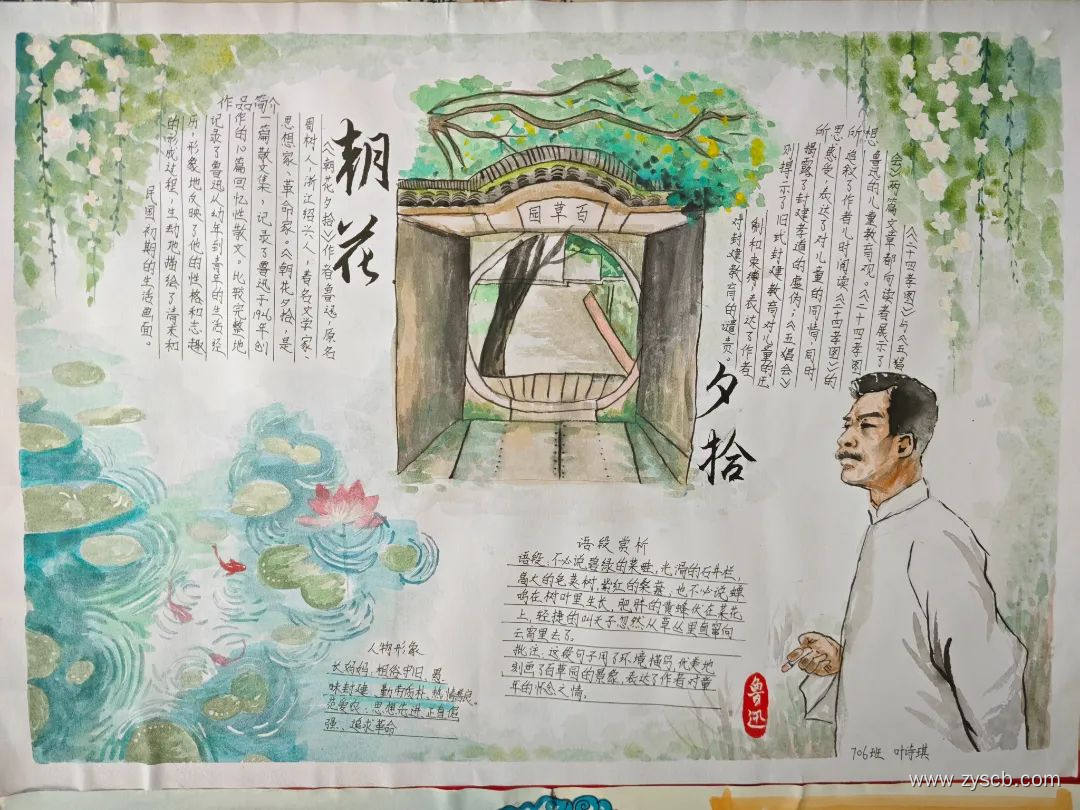 朝花
夕拾
百草园
作品简介
《朝花夕拾》作者鲁迅，原名
周树人，浙江绍兴人，著名文学家
思想家、革命家。《朝花夕拾》是
一篇散文集，记录了鲁迅于1926年创
作的10篇回忆性散文。比较完整地
记录了鲁迅从幼年到青年的生活经
历，形象地反映了他的性格和志趣
的形成过程，生动地描绘了清末和
民国初期的生活画面。
《二十四孝图》与《五猖
会》两篇文章都向读者展示了
鲁迅的儿童教育观。《二十四孝图》
所追叙了作者儿时阅读《二十四孝图》的
所感受，表达了对儿童的同情，同时
揭露了封建孝道的虚伪；《五猖会》
则揭示了旧式封建教育对儿童的压
制和束缚，表达了作者
对封建教育的谴责。
语段赏析
语段：不必说碧绿的菜畦，光滑的石井栏，
高大的皂荚树，紫红的桑葚，也不必说蝉
鸣在树叶里生长，肥胖的黄蜂伏在菜花
上，轻捷的叫天子忽然从草丛里直窜向
云霄里去了。
批注：这段句子用了环境描写，
刻画了百草园的景象，表达了作者对童
年的怀念之情。
人物形象
长妈妈：粗俗守旧、愚
昧封建、勤劳质朴、热情善良。
范爱农：思想先进、正直倔
强、追求革命
鲁迅
706班 叶诗琪
www.zyscb.com